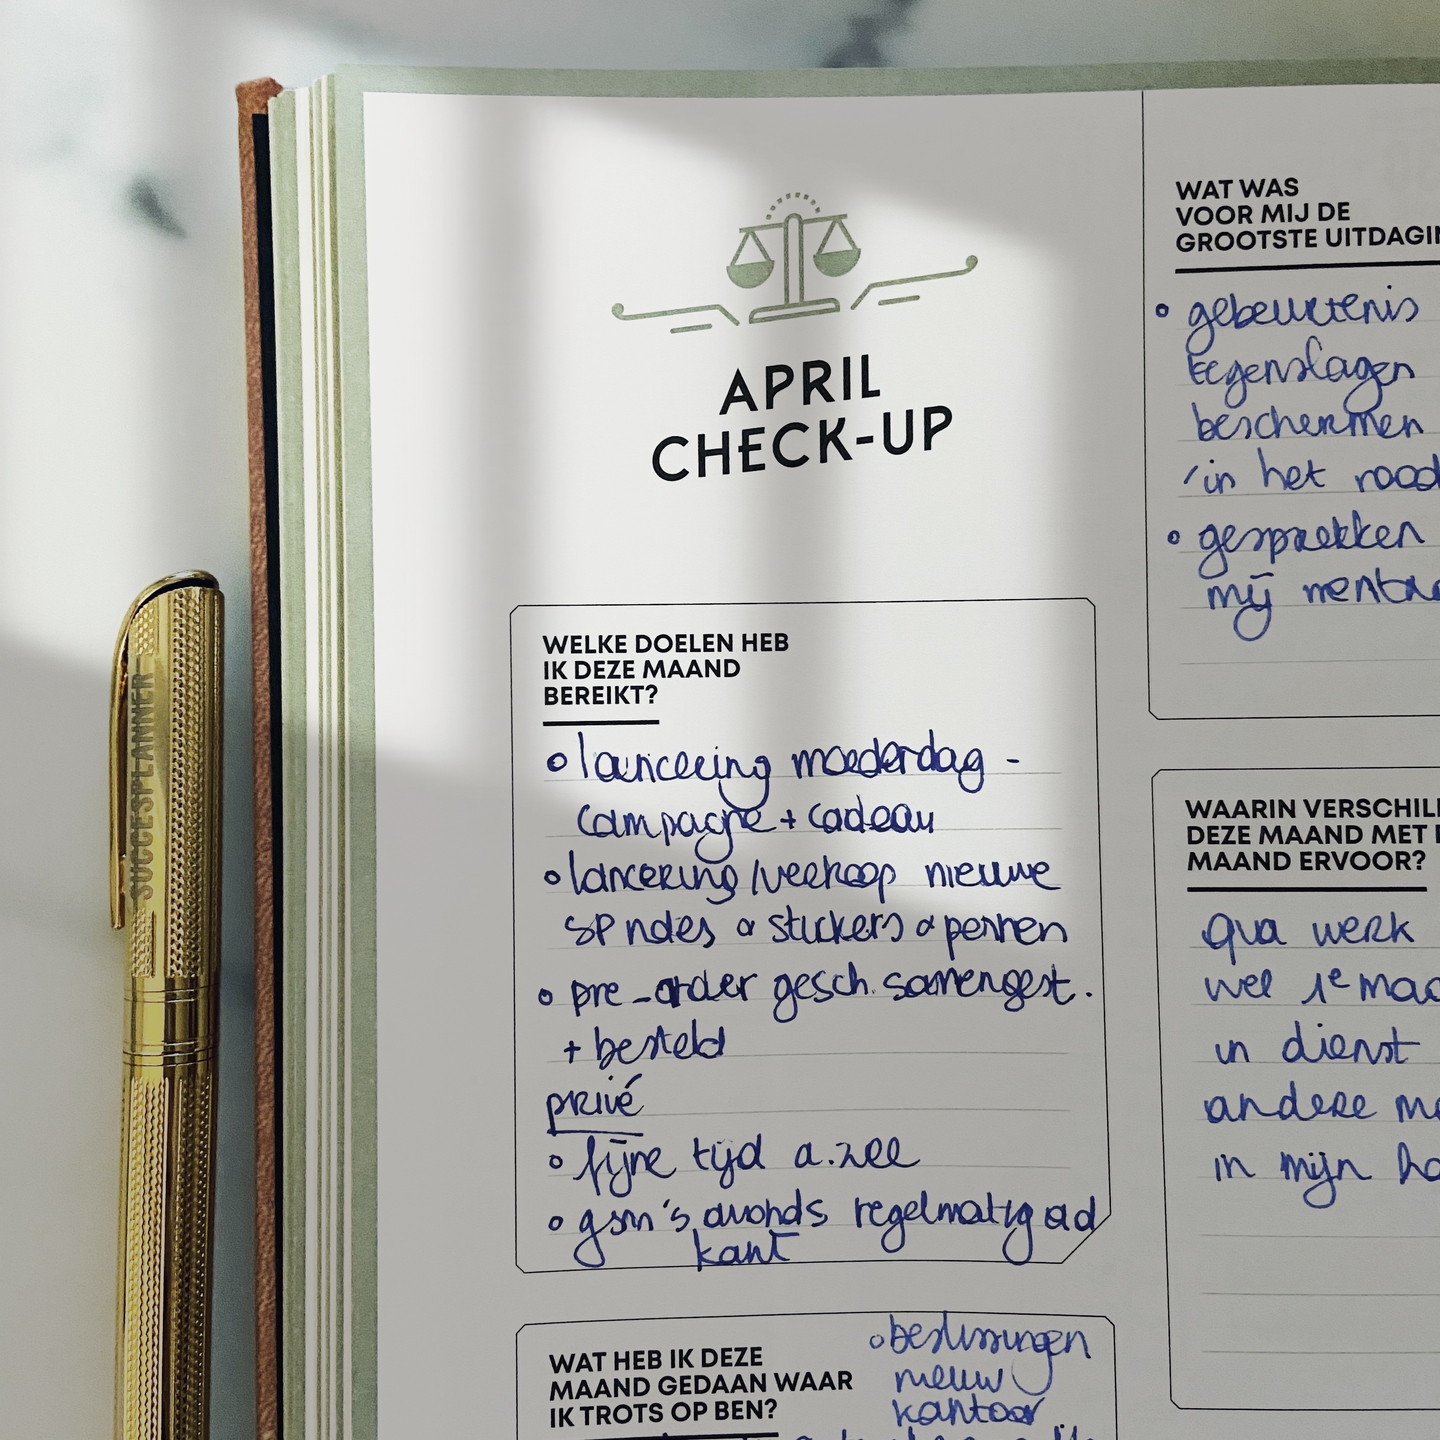 APRIL
CHECK-UP
WELKE DOELEN HEB
IK DEZE MAAND
BEREIKT?
o lancering moederdag -
campagne + cadeau
o lancering/verkoop nieuwe
SP notes & stickers & pennen
o pre-order gesch. samengest.
+ besteld
privé
o fijne tijd a.zee
o gsm's avonds regelmatig ad
kant
WAT HEB IK DEZE
MAAND GEDAAN WAAR
IK TROTS OP BEN?
o beslissingen
nieuw
kantoor
WAT WAS
VOOR MIJ DE
GROOTSTE UITDAGIN
o gebeurtenis
tegenslagen
beschermen
/in het rood
o gesprekken
mij
WAARIN VERSCHIL
DEZE MAAND MET
MAAND ERVOOR?
qua werk
wel 1e maa
in dienst
andere
in mijn
SUCCESPLANNER